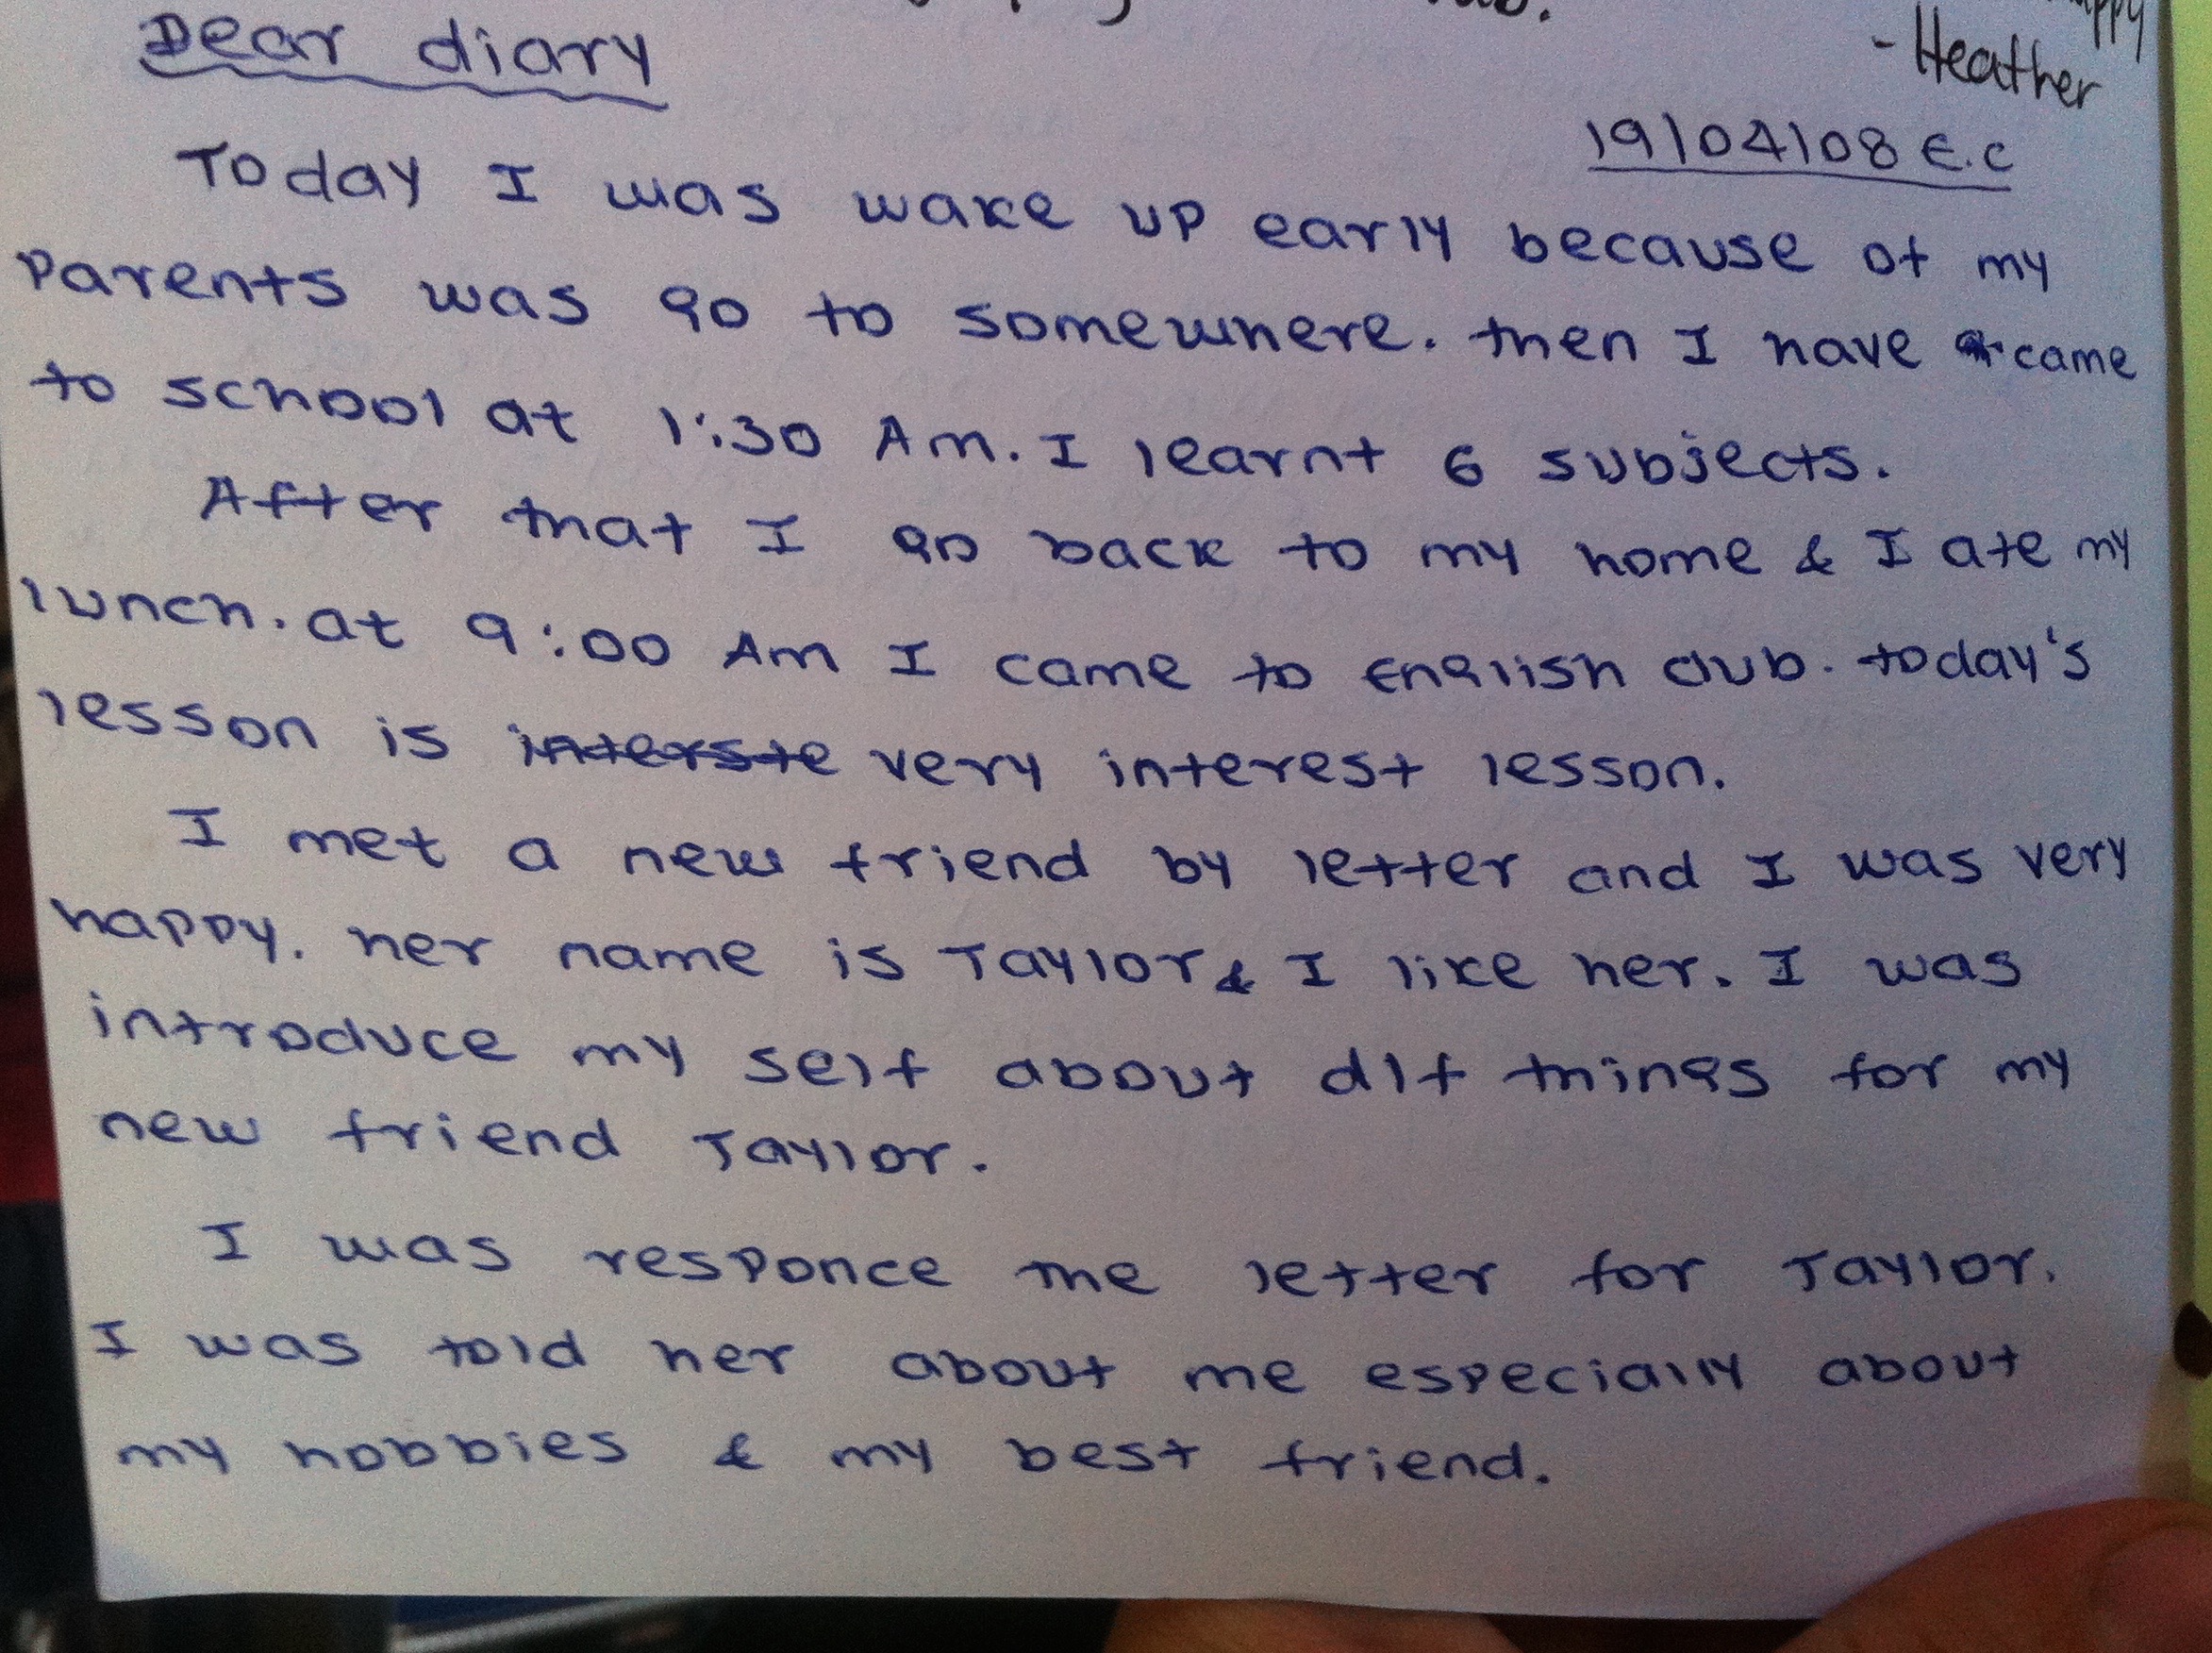 - Heather
Dear diary
19/04/08 E.C
Today I was wake up early because of my
Parents was go to somewhere. then I have came
to school at 1:30 Am. I learnt 6 subjects.
After that I go back to my home & I ate my
lunch. at 9:00 Am I came to English club. today's
lesson is interste very interest lesson.
I met a new friend by letter and I was very
happy. her name is Taylor & I like her. I was
introduce my self about dif things for my
new friend Taylor.
I was responce the letter for Taylor.
I was told her about me especially about
my hobbies & my best friend.